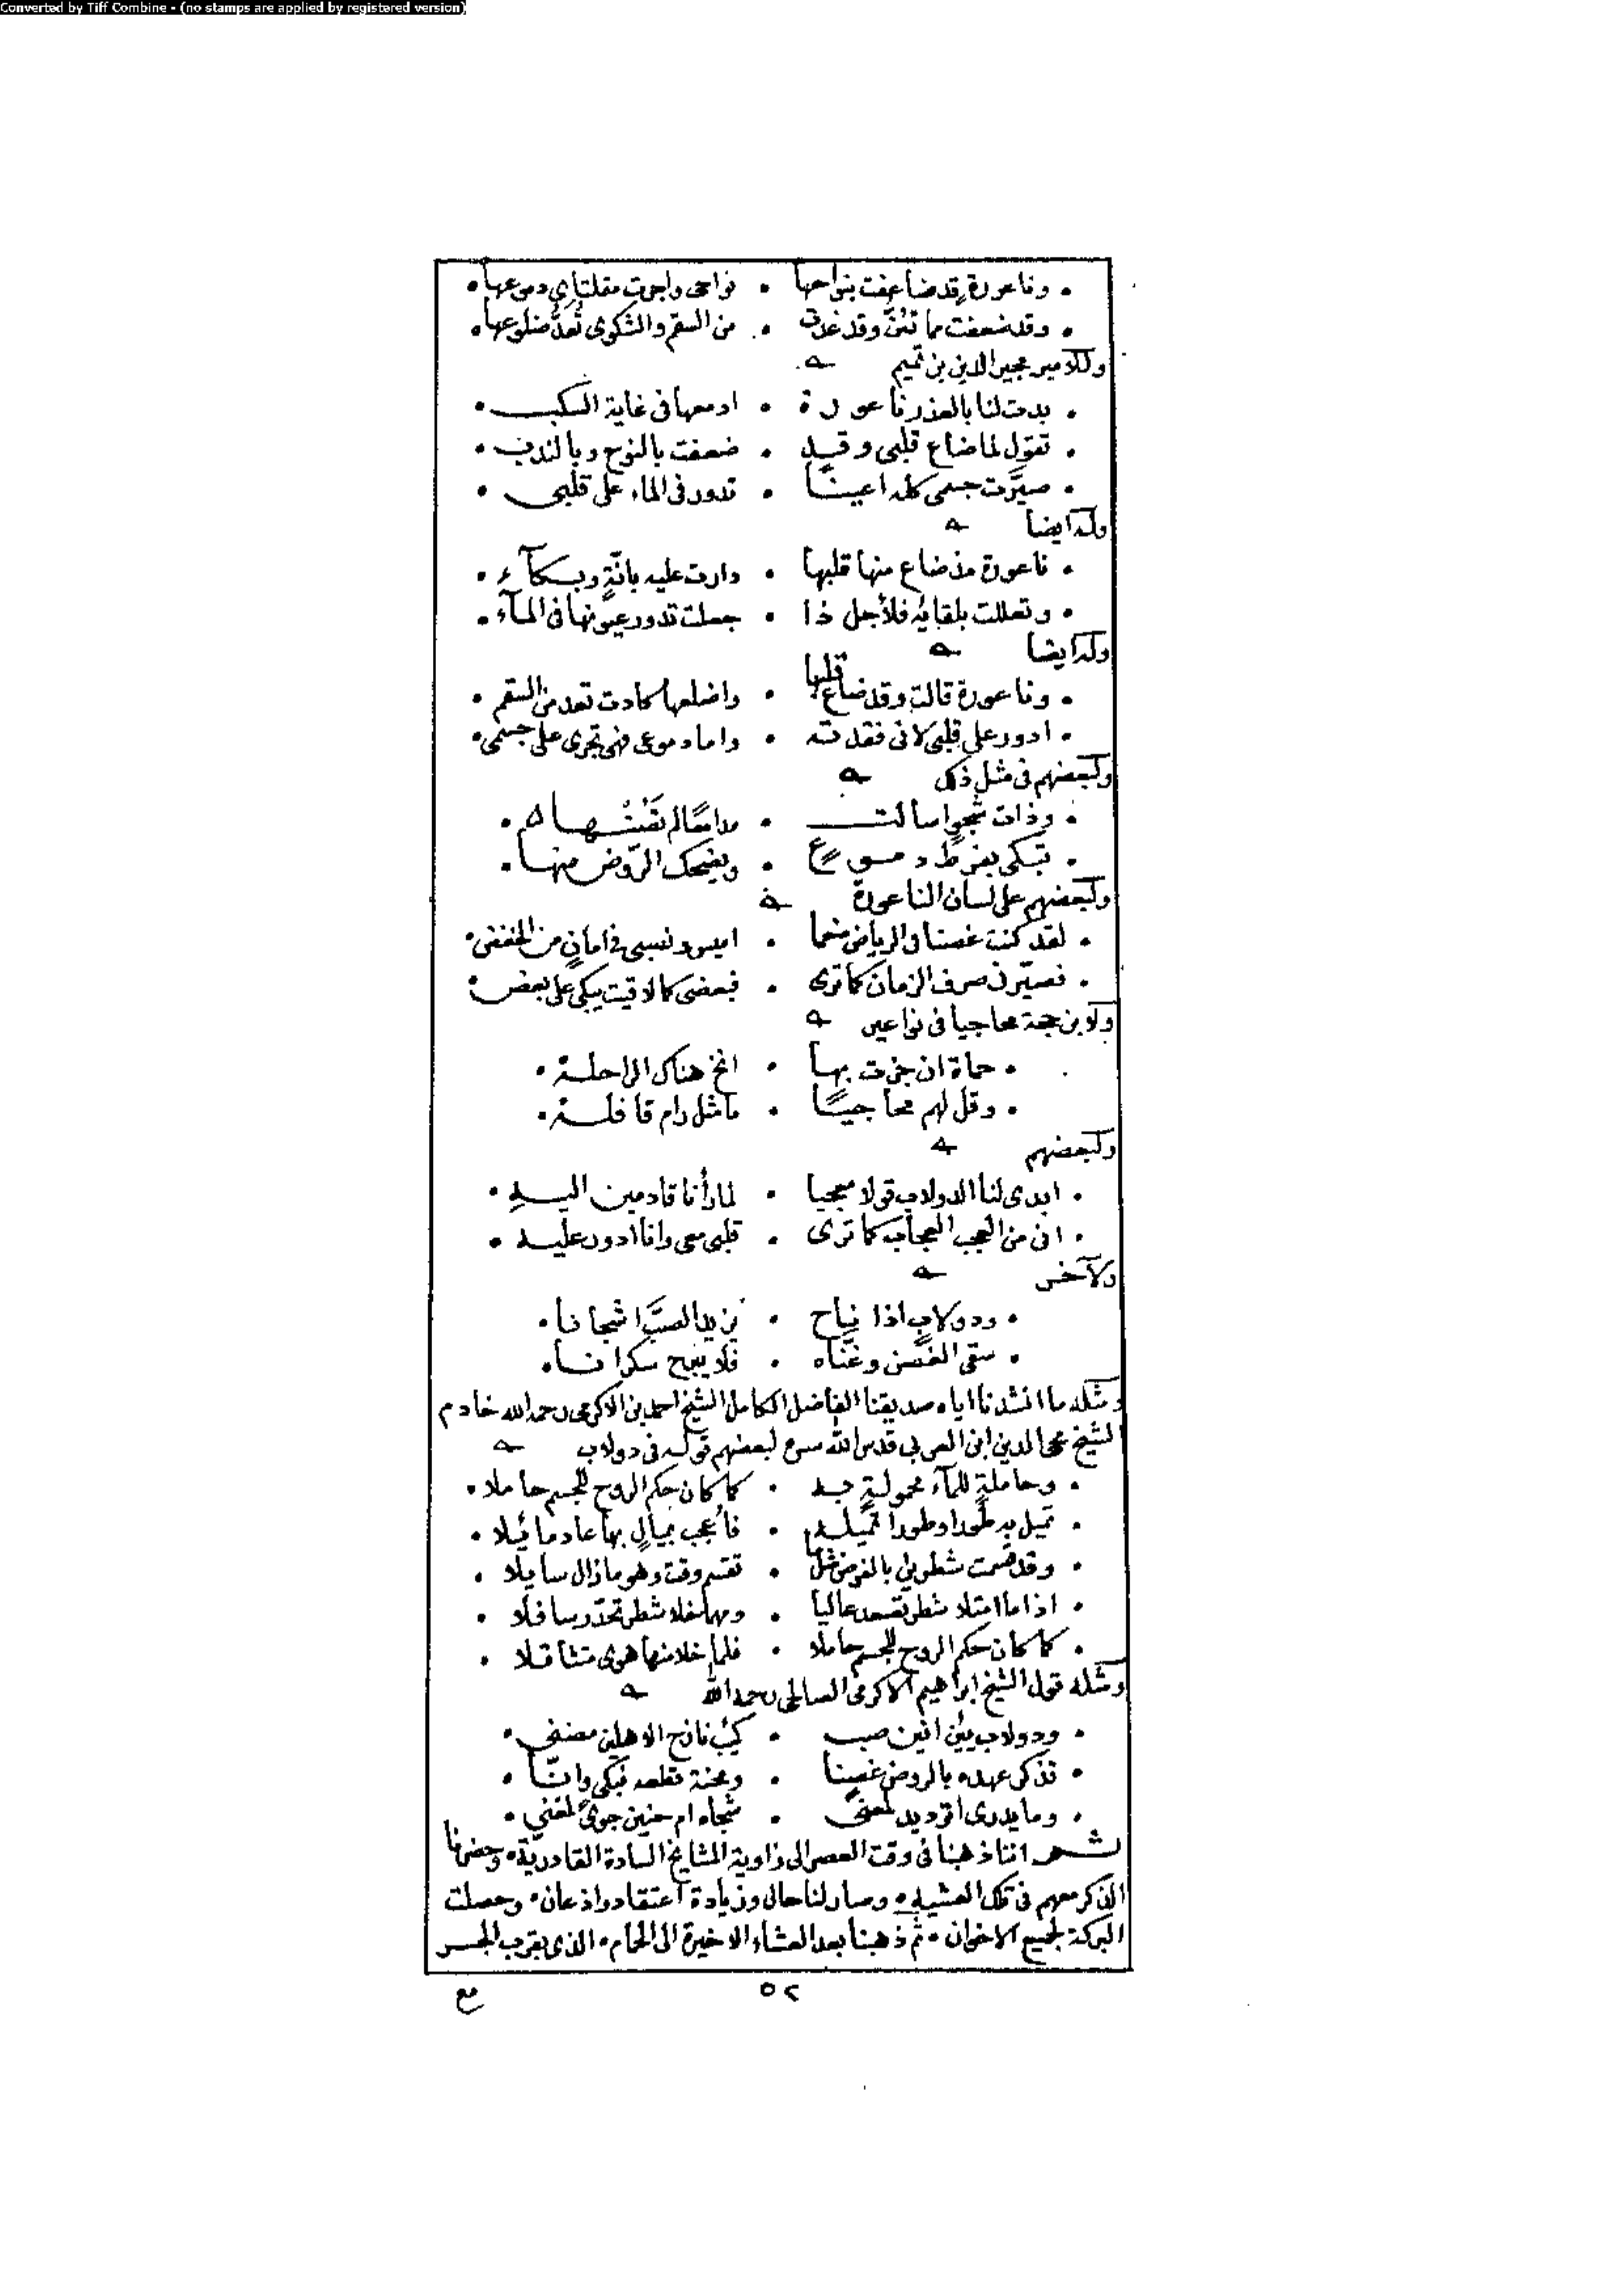 Converted by Tiff Combine - (no stamps are applied by registered version)
• وناعورة قد ضاعفت بنواحها • نواحى واجرت مقلتاي دموعها •
• وقد ضعفت مما تئنّ وقد غدت • من السقم والشكوى تُعدُّ ضلوعها •
وللامير مجير الدين بن تميم
• بدت لنا بالعذر ناعورة • ادمعها فى غاية السكب •
• تقول لما ضاع قلبى وقد • ضعفت بالنوح وبالندب •
• صيّرت جسمى كله اعينا • تدور فى الماء على قلبى •
وله ايضا
• ناعورة مذ ضاع منها قلبها • دارت عليه بانّةٍ وبكآء •
• وتعللت بلقايه فلأجل ذا • جعلت تدور عيونها فى المآء •
وله ايضا
• وناعورة قالت وقد ضاع قلبها • واضلعها كادت تعد من السقم •
• ادور على قلبى لانى فقدته • واما دموعى فهى تجرى على جسمى •
ولبعضهم فى مثل ذلك
• وذات شجوٍ اسالت • مدامعًا لم تصنها •
• تبكى بفرط دموعٍ • ويضحك الرّوض منها •
ولبعضهم على لسان الناعورة
• لقد كنت غصنا فى الرياض منعما • اميس ونسبى فى امانٍ من الخفض •
• فصيّرنى صرف الزمان كما ترى • فبعضى كما لاقيت يبكى على بعض •
ولابن حجة محاجيا فى نواعير
• حماة ان جزت بها • انخ هناك الراحلة •
• وقل لهم محاجيًا • ما مثل رام قافلة •
ولبعضهم
• ابدى لنا الدولاب قولا معجبا • لما رأنا قادمين اليهِ •
• انى من العجب العجاب كما ترى • قلبى معى وانا ادور عليه •
ولآخر
• ودولابٍ اذا ناح • يزيد الصبَّ اشجانا •
• سقى الغصن وغنّاه • فلا يبرح سكرانا •
ومثله ما انشدنا اياه صديقنا الفاضل الكامل الشيخ احمد بن الاكرمى رحمه الله خادم
الشيخ محى الدين ابن العربي قدس الله سره لبعضهم قوله فى دولاب
• وحاملةٍ للمآء محمولةٍ به • كما كان حكم الروح للجسم حاملا •
• تميل به طورا وطورا تميله • فأعجب بميالٍ بها عاد مائيلا •
• وقد قسمت شطرين بالفرض مثلما • تقسم وقت وهو ما زال سايلا •
• اذا ما امتلا شطر تصعد عاليا • ومهما خلا شطر تحدّر سافلا •
• كما كان حكم الروح للجسم حاملا • فلما خلا منها هوى متثاقلا •
ومثله قول الشيخ ابراهيم الاكرمى الصالحى رحمه الله
• ودولاب يئن انين صب • كئيب نازح الاهلين مضنى •
• تذكر عهده بالروض غصنا • ومحنة قطعه فبكى وانّا •
• وما يدرى اترديد لمعنى • شجاه ام حنين جوىً لمغنى •
ثـم اننا ذهبنا فى وقت العصر الى زاوية المشايخ السادة القادريّة • وحضرنا
الذكر معهم فى تلك العشيه • وصار لنا حال وزيادة اعتقاد واذعان • وحصلت
البركة لجميع الاخوان • ثم ذهبنا بعد العشاء الاخيرة الى الحمام • الذى بقرب الجسر
٥٢
مع